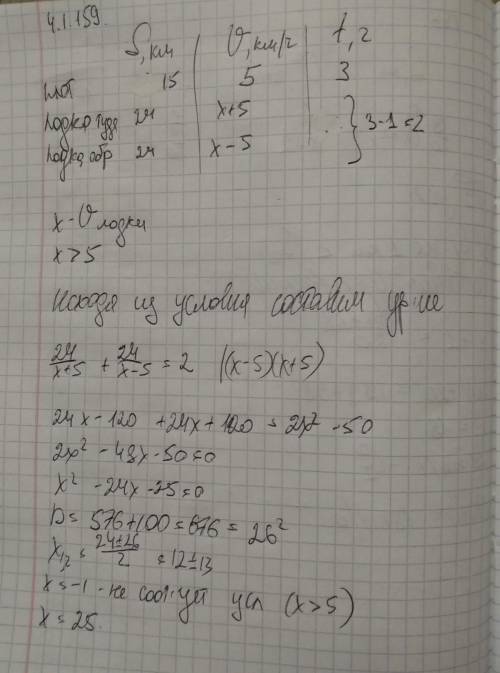 4.1.159.
S, км | V, км/ч | t, ч
плот 15 5 3
лодка туда 24 x+5 } 3-1=2
лодка обр 24 x-5
x - V лодки
x > 5
Исходя из условия составим ур-ие
24/(x+5) + 24/(x-5) = 2 |(x-5)(x+5)
24x - 120 + 24x + 120 = 2x² - 50
2x² - 48x - 50 = 0
x² - 24x - 25 = 0
D = 576 + 100 = 676 = 26²
x₁,₂ = (24±26)/2 = 12±13
x = -1 - не соот-ует усл (x > 5)
x = 25